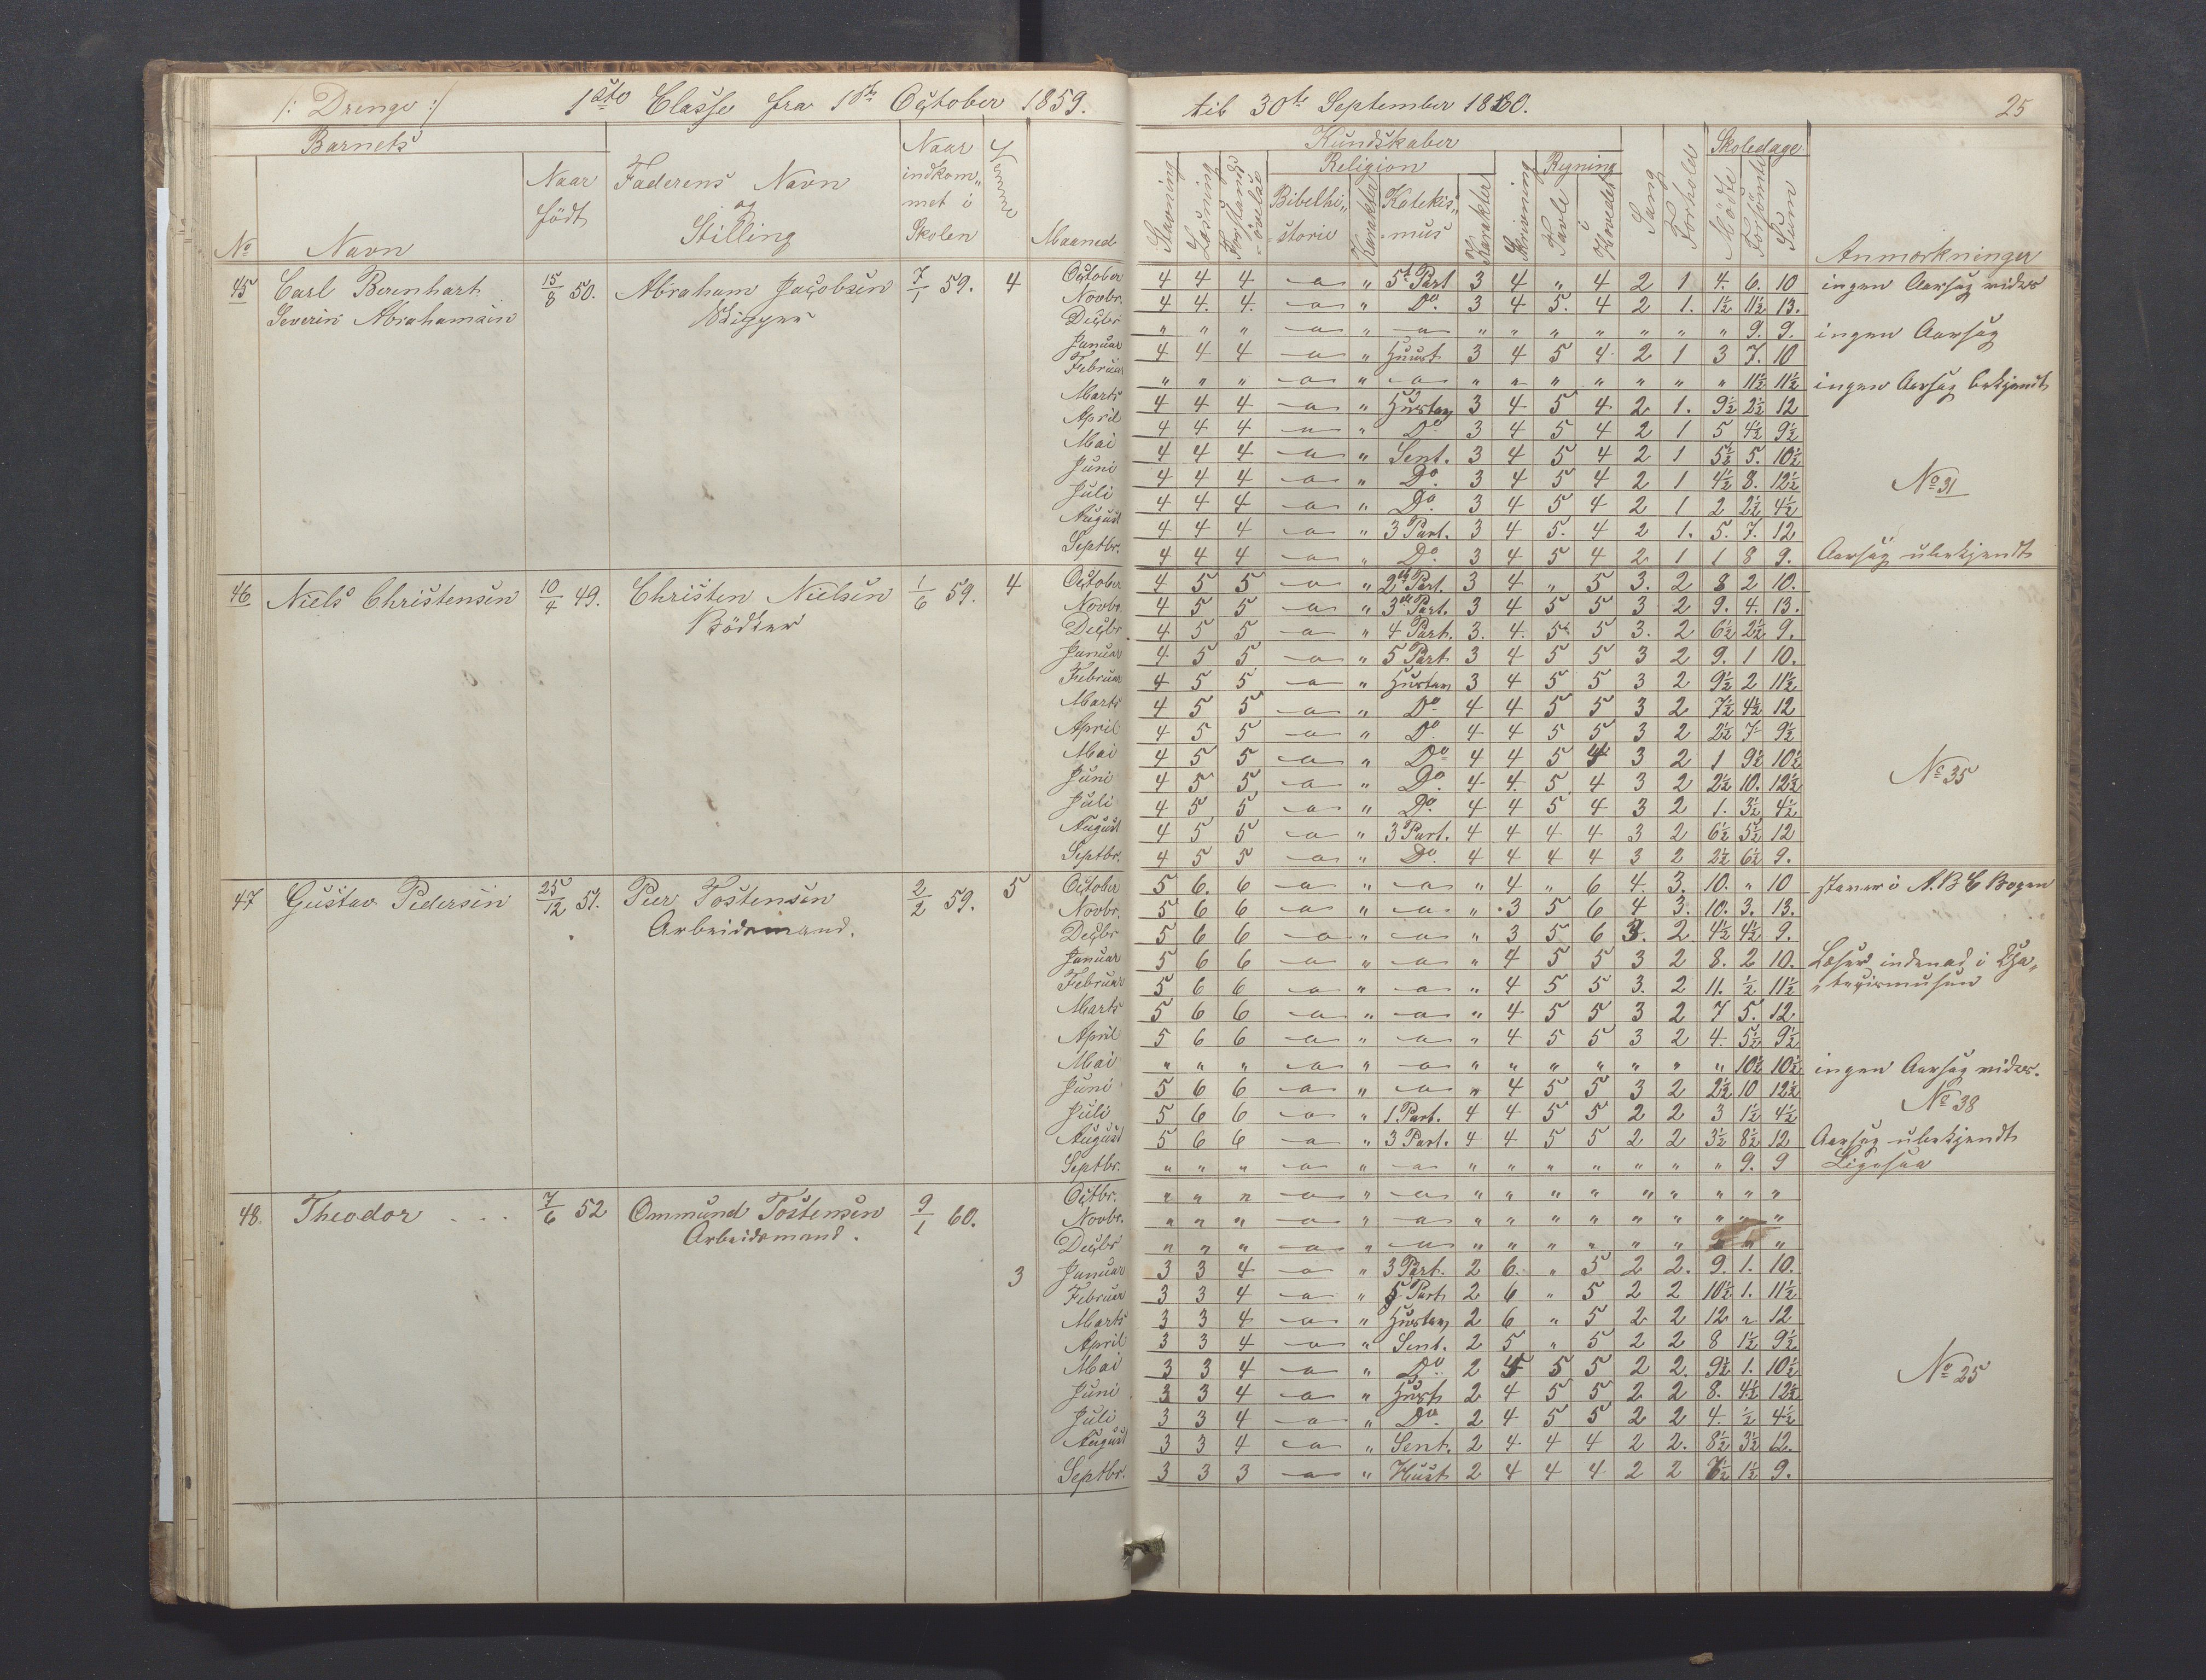 /: Drenge :/ 1ste Classe fra 1ste October 1859. til 30te September 1860. 25
Barnets
No Navn Naar födt Faderens Navn og Stilling Naar indkommet i Skolen Evne Maaned
Kundskaber
Stavning Læsning Religion Bibelhistorie Karakter Katekismus Karakter Skrivning Regning Tavle i Hovedet Sang Forhold
Skoledage Mödte Forsömte Sum
Anmærkninger
45 Carl Bernhart 15/8 50. Abraham Jacobsen 7/1 59. 4
Severin Abrahamsen
October 4 4 4 -a- " 5t Part 3 4 " 4 2 1 4. 6. 10 ingen Aarsag vides
Novbr. 4 4. 4. -a- " Do 3 4 5. 4 2 1. 1½ 11½ 13.
Decbr " " " -a- " -a- " " " " " " " 9. 9. ingen Aarsag
Januar 4 4 4 -a- " Hust 3 4 5 4 2 1 3 7. 10
Februar " " " -a- " -a- " " " " " " " 11½ 11½ ingen Aarsag bekjendt
Marts 4 4 4 -a- " Hustav 3 4 5 4 2 1. 9½ 2½ 12
April 4 4 4 -a- " Do 3 4 5 4 2 1 5 4½ 9½
Mai 4 4 4 -a- " Sent. 3 4 5 4 2 1 5½ 5. 10½
Juni 4 4 4 -a- " Do. 3 4 5 4 2 1 4½ 8. 12½ No 31
Juli 4 4 4 -a- " Do 3 4 5 4 2 1 2 2½ 4½
August 4 4 4 -a- " 3 Part. 3 4 5. 4 2 1. 5. 7. 12
Septbr. 4 4 4 -a- " Do. 3 4 5 4 2 1 1 8 9. Aarsag ubekjendt
46 Niels Christensen 10/4 49. Christen Nielsen 1/6 59. 4
Bödker
October 4 5 5 -a- " 2de Part. 3 4 " 5 3. 2 8 2 10.
Novbr. 4 5 5 -a- " 3de Part. 3 4 5 5 3 2 9. 4. 13.
Decbr. 4 5 5 -a- " 4 Part. 3. 4. 5 5 3. 2 6½ 2½ 9.
Januar 4 5 5 -a- " 5 Part 3 4 5 5 3 2 9. 1 10.
Februar 4 5 5 -a- " Hustav 3 4 5 5 3 2 9½ 2 11½
Marts 4 5 5 -a- " Do 4 4 5 5 3 2 7½ 4½ 12
April 4 5 5 -a- " Do 4 4 5 5 3 2 2½ 7 9½
Mai 4 5 5 -a- " Do 4 4 5 4 3 2 1 9½ 10½
Juni 4 5 5 -a- " Do. 4 4. 5 4 3 2 2½ 10. 12½ No 35
Juli 4 5 5 -a- " Do. 4 4 5 4 3 2 1. 3½ 4½
August 4 5 5 -a- " 3 Part. 4 4 4 4 3 2 6½ 5½ 12
Septbr. 4 5 5 -a- " Do. 4 4 4 4 3 2 2½ 6½ 9.
47 Gustav Pedersen 25/12 51. Peer Tostensen 2/2 59. 5
Arbeidsmand.
October 5 6. 6 -a- " -a- " 4 " 6 4. 3. 10. " 10 staver i A.B C Bogen
Novbr. 5 6 6 -a- " -a- " 3 5 6 4 3. 10. 3. 13.
Decbr 5 6 6 -a- " -a- " 3 5 6 3. 2 4½ 4½ 9.
Januar 5 6 6 -a- " -a- " 4 5 5 3 2 8. 2 10. Læser indenad i Cha„
Februar 5 6 6 -a- " -a- " 4 5 5 3. 2 11. ½ 11½ „tecismusen
Marts 5 6 6 -a- " -a- " 4 5 5 3 2 7 5. 12
April 5 6 6 -a- " -a- " 4 5 5 3 2 4. 5½ 9½
Mai " " " -a- " -a- " " " " " " " 10½ 10½ ingen Aarsag vides.
Juni 5 6 6 -a- " -a- " 4 5 5 3 2 2½ 10 12½
Juli 5 6 6 -a- " 1 Part. 4 4 5 5 2 2 3 1½ 4½ No 38
August 5 6 6 -a- " 3 Part. 4 4 5 5 2 2 3½ 8½ 12 Aarsag ubekjendt
Septbr. " " " -a- " -a- " " " " " " " 9. 9 Ligesaa
48. Theodor . . . 7/6 52 Ommund Tostensen 9/1 60.
Arbeidsmand.
Octbr. " " " -a- " -a- " " " " " " " " "
Novbr. " " " -a- " -a- " " " " " " " " "
Decbr " " " -a- " -a- " " " " " " " "
3 Januar 3 3 4 -a- " 3 Part. 2 6. " 5 2 2. 9. 1. 10.
Februar 3 3 4 -a- " 5 Part 2 6 " 5 2 2 10½ 1. 11½
Marts 3 3 4 -a- " Hustav 2 6 " 5 2 2 12 " 12
April 3 3 4 -a- " Sent. 2 5 " 5 2 2 8 1½ 9½
Mai 3 3 4 -a- " Do 2 5 5 2 2. 9½ 1. 10½ No 25
Juni 3 3 4 -a- " Hust 2 4 5 5 2 2 8. 4½ 12½
Juli 3 3 4 -a- " Do. 2 4 5 5 2 2 4. ½ 4½
August 3 3 4 -a- " Sent. 2 4 4 4 2 2. 8½ 3½ 12.
Septbr. 3 3 3 -a- " Hust 2 4 4 4 2 2 7½ 1½ 9.